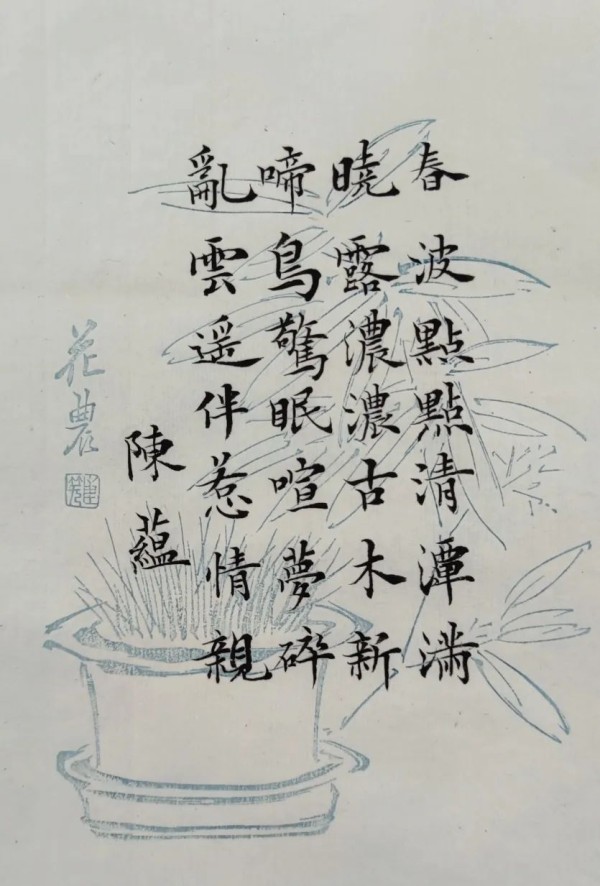 春波點點清潭滿
曉露濃濃古木新
啼鳥驚眠喧夢碎
亂雲遥伴惹情親
陳蘊
花農